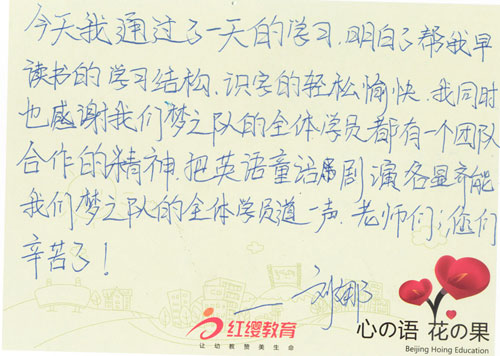 今天我通过了一天的学习.明白了帮我早
读书的学习结构.识字的轻松愉快.我同时
也感谢我们梦之队的全体学员都有一个团队
合作的精神.把英语童话剧演各显奇能
我们梦之队的全体学员道一声.老师们;您们
辛苦了!
— 刘娜
红缨教育
让幼教赞美生命
心の语 花の果
Beijing Hoing Education